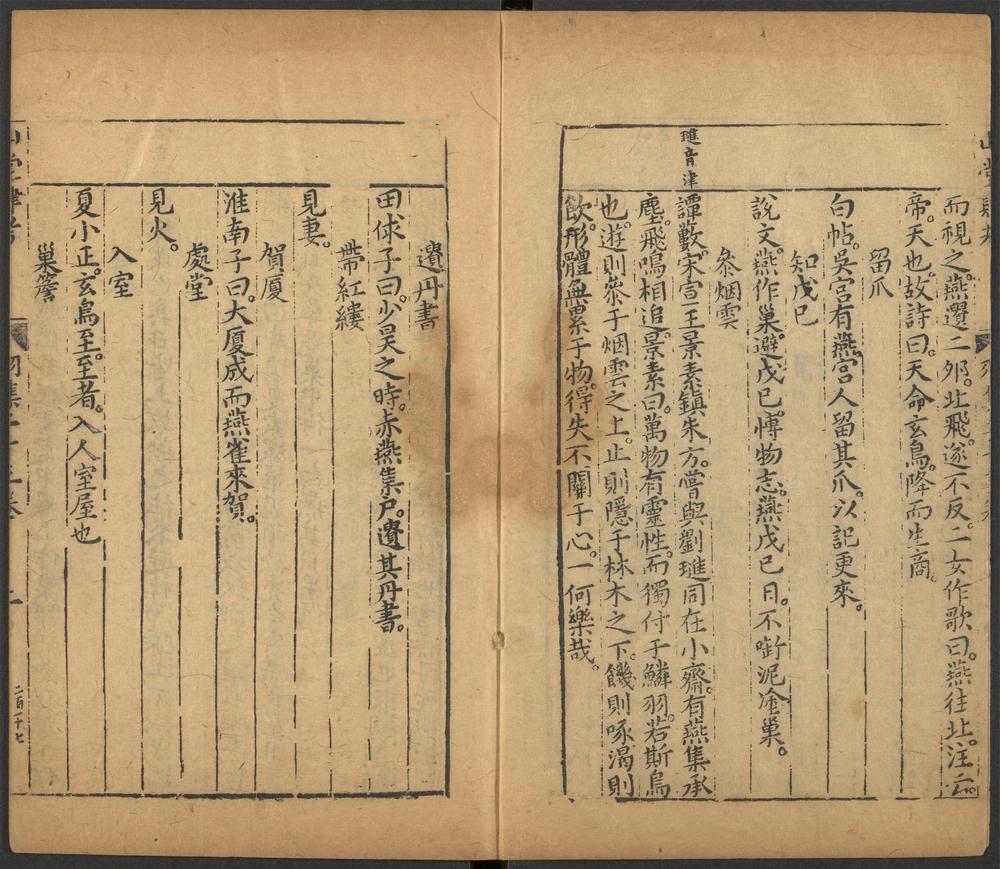 而視之。燕遺二卵。北飛。遂不反。二女作歌曰。燕往北。注云。
帝。天也。故詩曰。天命玄鳥。降而生商。
留爪
白帖。吳宮有燕。宮人留其爪。以記更來。
知戊己
說文。燕作巢。避戊己。博物志。燕戊己日。不啣泥塗巢。
參烟雲
璡音津
譚藪。宋宣王景素鎮朱方。嘗與劉璡同在小齋。有燕集承
塵。飛鳴相追。景素曰。萬物有靈性。而獨付于鱗羽。若斯鳥
也。遊則參于烟雲之上。止則隱于林木之下。饑則啄。渴則
飲。形體無累于物。得失不關于心。一何樂哉。
遺丹書
田俅子曰。少昊之時。赤燕集戶。遺其丹書。
帶紅縷
見妻。
賀厦
淮南子曰。大厦成而燕雀來賀。
處堂
見火。
入室
夏小正。玄鳥至。至者。入人室屋也
巢簷
二百一十七